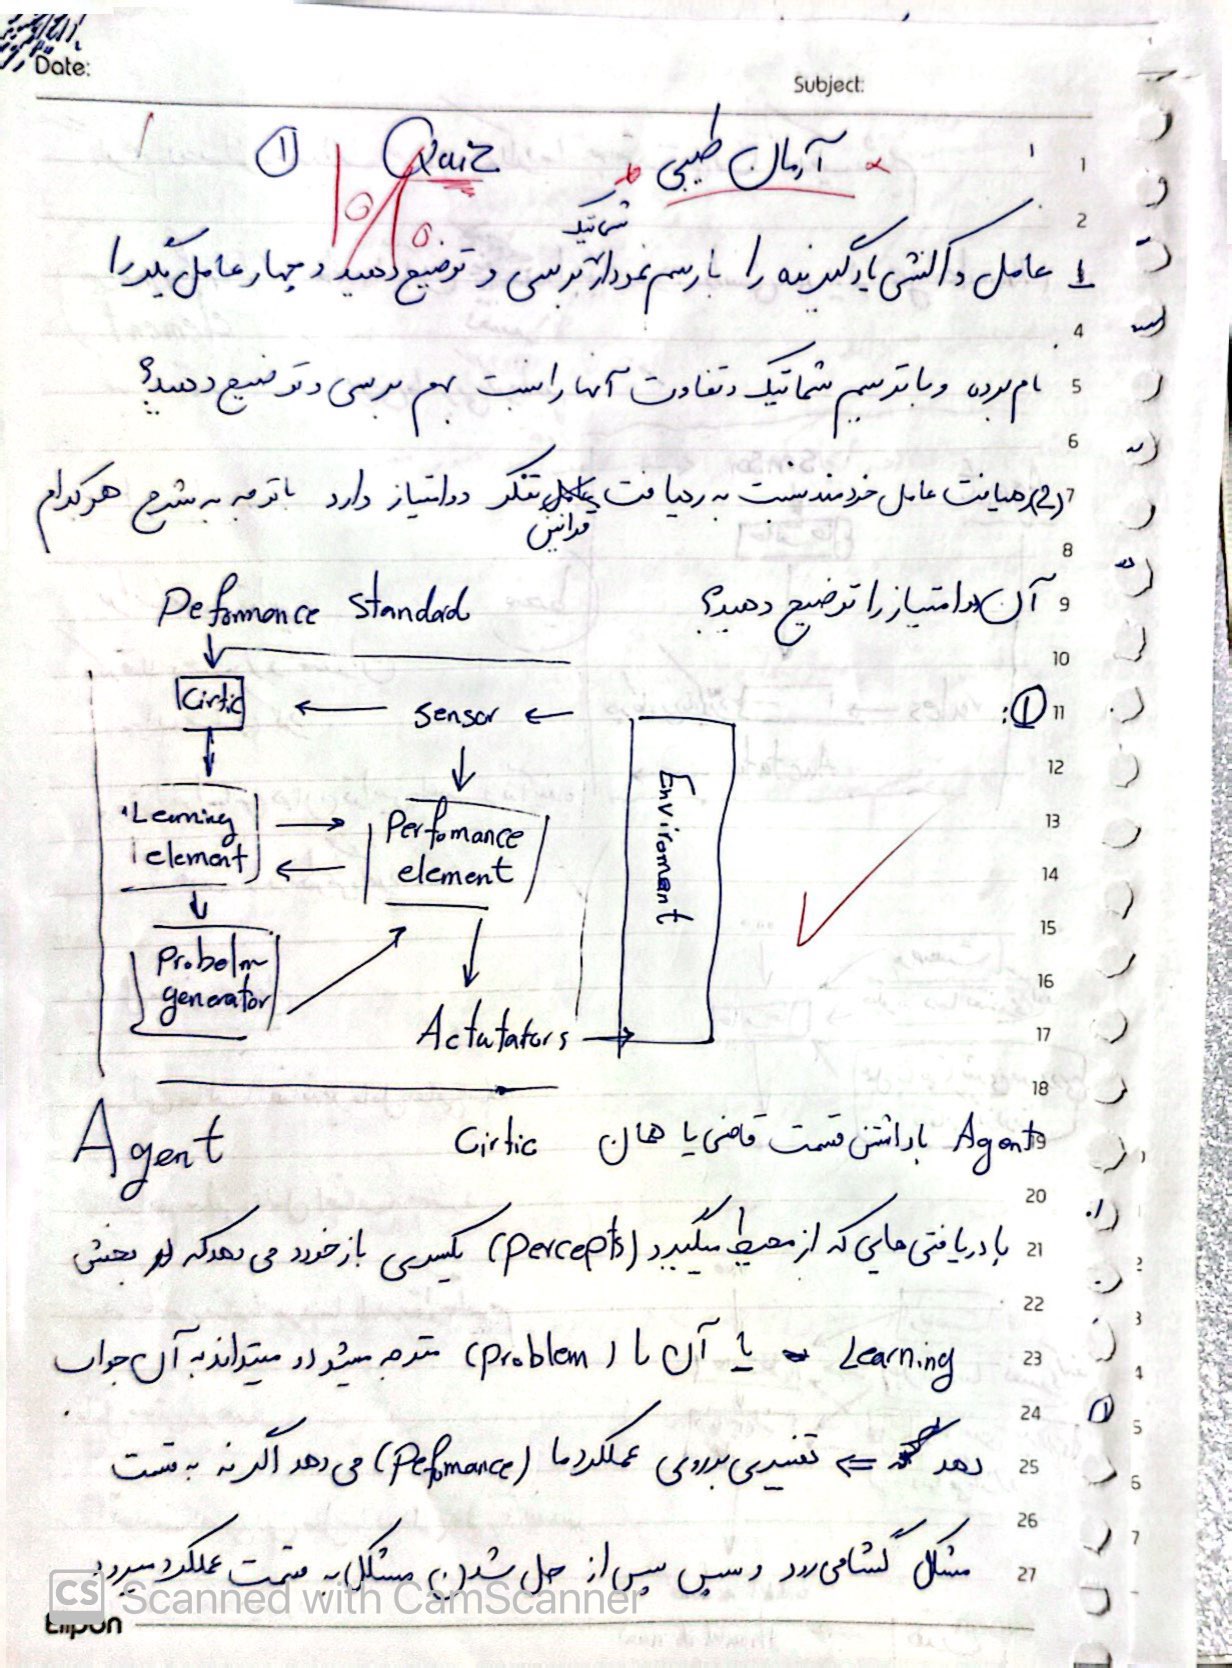 Date:
Subject:
آرمان طیبی
Quiz ①
شماتیک
1 عامل واکنشی یادگیرنده را با رسم نمودار بررسی و توضیح دهید و چهار عامل دیگر را
نام برده و با ترسیم شماتیک و تفاوت آنها را نسبت بهم بررسی و توضیح دهید؟
(2) رهیافت عامل خردمند نسبت به رهیافت تفکر دو امتیاز دارد با توجه به شرح هر کدام
قوانین
آن دو امتیاز را توضیح دهید؟
Peformance standad
①:
Cirtic
sensor
Learning element
Perfomance element
Enviromant
Probelm generator
Actutators
Agent
Agent با داشتن قسمت قاضی یا همان Cirtic
با دریافتی هایی که از محیط میگیرد (Percepts) یکسری بازخورد می دهد که بخش
Learning یا آن را (problem) متوجه میشود و میتواند به آن جواب
دهد ⇐ تغییری برروی عملکرد ما (Pefomance) می دهد اگر نه به قسمت
مشکل گشا می رود و سپس پس از حل شدن مشکل به قسمت عملکرد میرود.
1
2
4
5
6
7
8
9
10
11
12
13
14
15
16
17
18
19
20
21
22
23
24
25
26
27
CS Scanned with CamScanner
Elipon